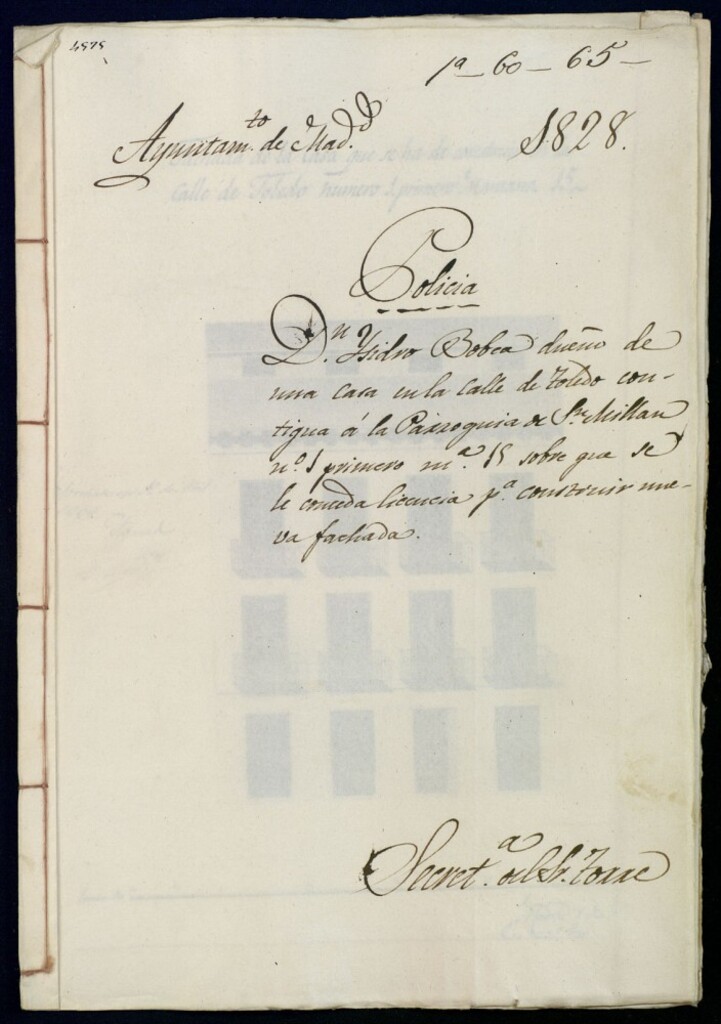 4575
1ª - 60 - 65 -
Ayuntam.to de Mad.d 1828.
Policia
D.n Ysidro Bobea dueño de
una casa en la Calle de Toledo con-
tigua á la Parroquia de S.n Millan
n.º 1 primero m.a 15 sobre que se
le conceda licencia p.a construir nue-
va fachada.
Secret.a del Sr. Torre